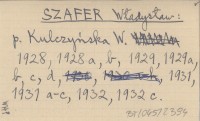 SZAFER Władysław:
p. Kulczyńska W.
1928, 1928 a, b, 1929, 1929a,
b, c, d, 1931,
1931 a-c, 1932, 1932 c.